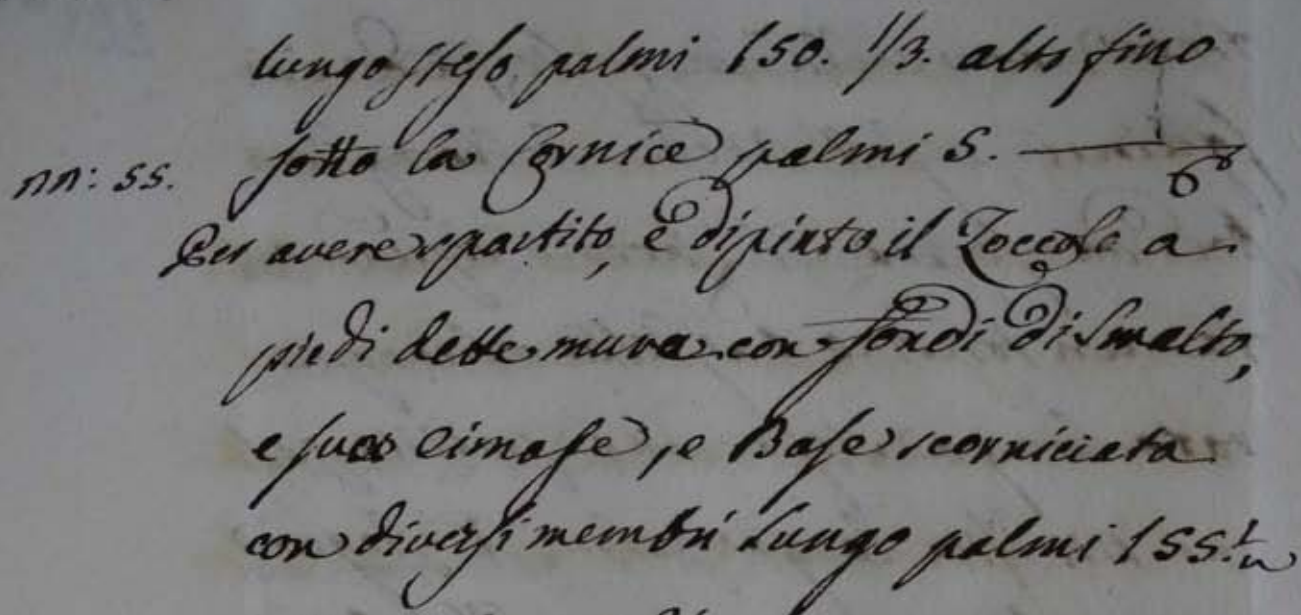 lungo steso palmi 150. 1/3. alto fino
nn: 55. sotto la Cornice palmi 5.
Per avere spartito, e dipinto il Zoccolo a
piedi dette mura con fondi di Smalto,
e sua Cimase, e Base scorniciata
con diversi membri lungo palmi 155. 1/2